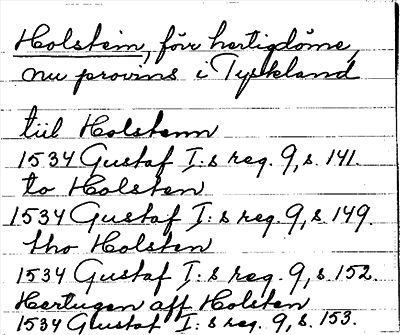 Holstein, förr hertigdöme,
nu provins i Tyskland
till Holstenn
1534 Gustaf I:s reg. 9, s. 141.
to Holsten
1534 Gustaf I:s reg. 9, s. 149.
tho Holsten
1534 Gustaf I:s reg. 9, s. 152.
Hertugen aff Holsten
1534 Gustaf I:s reg. 9, s. 153.